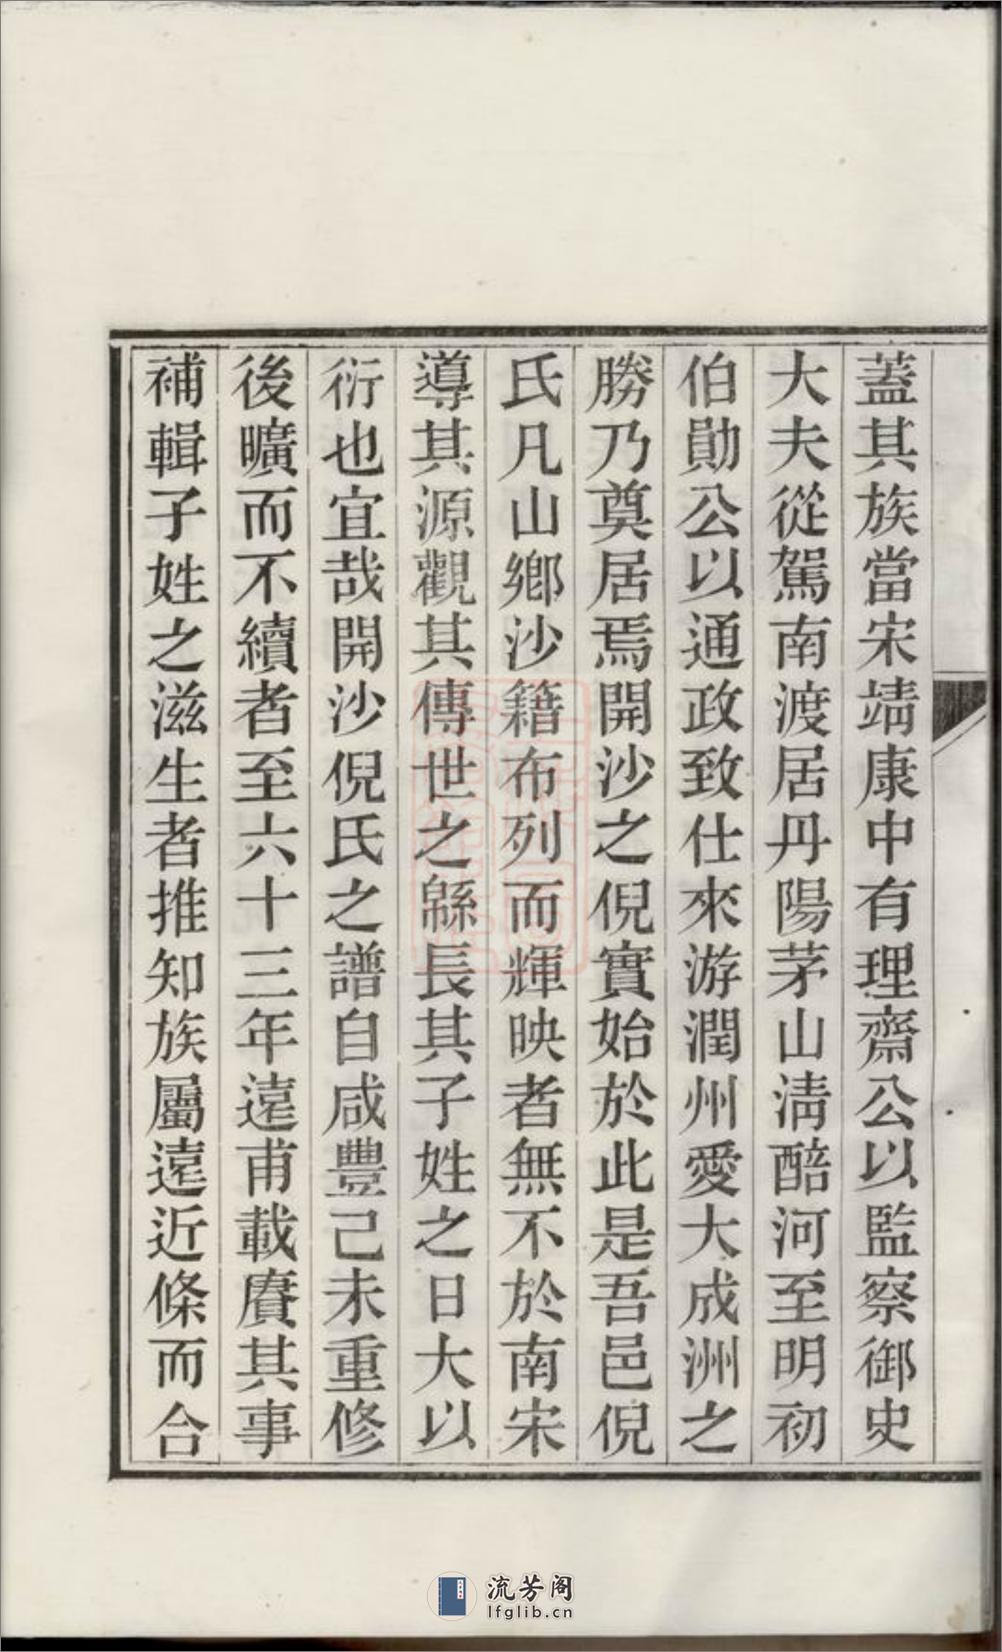 蓋其族當宋靖康中有理齋公以監察御史
大夫從駕南渡居丹陽茅山淸醅河至明初
伯勛公以通政致仕來游潤州愛大成洲之
勝乃奠居焉開沙之倪實始於此是吾邑倪
氏凡山鄉沙籍布列而輝映者無不於南宋
導其源觀其傳世之緜長其子姓之日大以
衍也宜哉開沙倪氏之譜自咸豐己未重修
後曠而不續者至六十三年遠甫載賡其事
補輯子姓之滋生者推知族屬遠近條而合
流芳阁
lfglib.cn